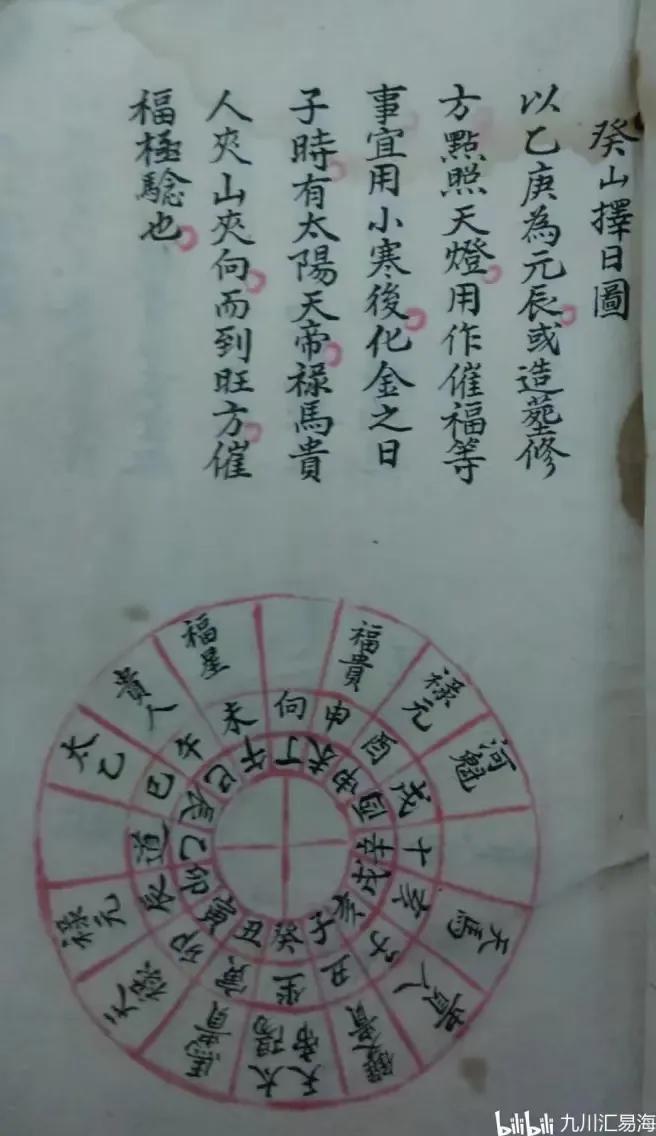 癸山擇日圖
以乙庚為元辰或造塟修
方點照天燈用作催福等
事宜用小寒後化金之日
子時有太陽天帝祿馬貴
人夾山夾向而到旺方催
福極驗也
福貴
祿元
河魁
天馬
貴人
太陽
天帝
馬貴
天祿
祿元
太乙
貴人
福星
向
申
酉
戌
十
亥
子
丑
坐
寅
卯
辰
道
巳
午
未
丁
未
申
酉
辛
戌
亥
子
癸
丑
寅
卯
乙
辰
巳
午
bilibili 九川汇易海